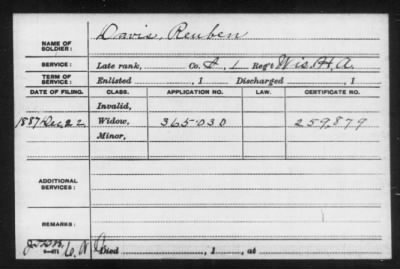 NAME OF SOLDIER: Davis, Reuben
SERVICE: Late rank, Co. I, 1 Reg't Wis. H. A.
TERM OF SERVICE: Enlisted , 1 Discharged , 1
DATE OF FILING. CLASS. APPLICATION NO. LAW. CERTIFICATE NO.
Invalid,
1887 Dec 22 Widow, 365030 259,879
Minor,
ADDITIONAL SERVICES:
REMARKS:
Died , 1 , at